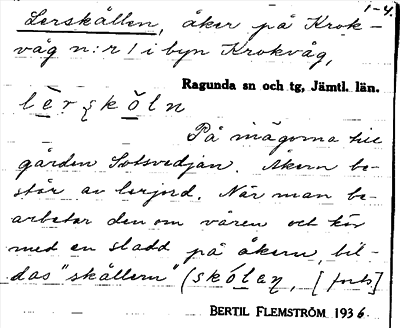 1-4.
Lerskållen, åker på Krok-
våg n:r 1 i byn Krokvåg,
Ragunda sn och tg, Jämtl. län.
lèrskòln
På mägorna till
gården Sotsvedjan. Åkern be-
står av lerjord. När man be-
arbetar den om våren och kör
med en sladd på åkern, bil-
das "skållern" (skólan, [forts]
BERTIL FLEMSTRÖM 1936.